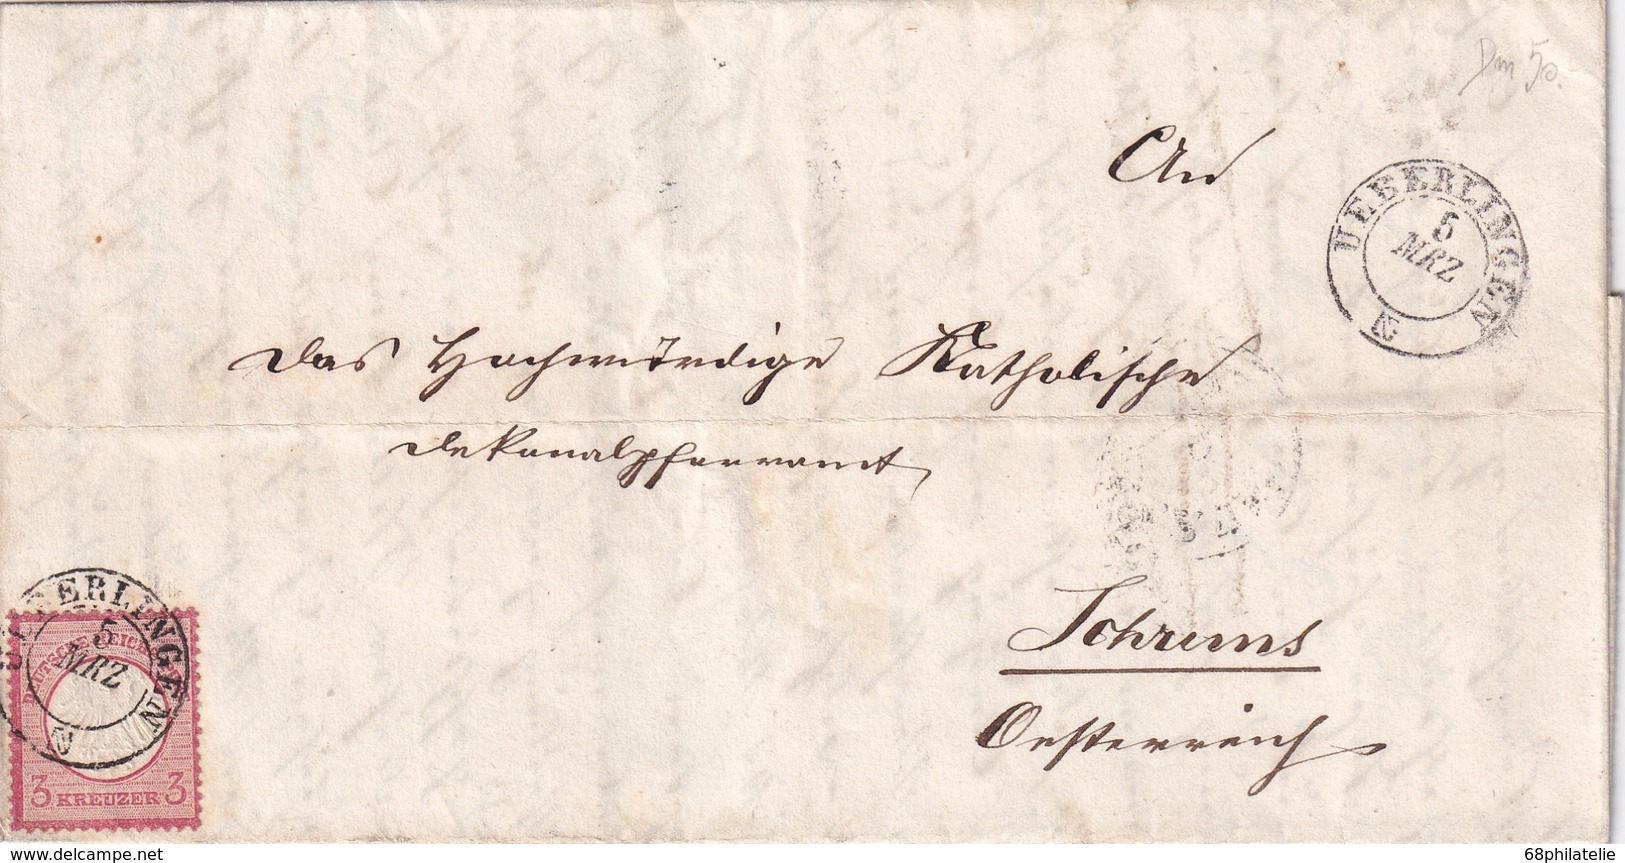 Dm 50.-
An
UEBERLINGEN
5
MRZ
N
das Hochwürdige Katholische
Dekanalpfarramt
Schrems
Oesterreich
UEBERLINGEN
5
MRZ
N
DEUTSCHE REICHS
3 KREUZER 3
www.delcampe.net
68philatelie